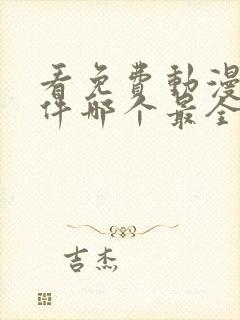 看免費動漫
件哪个最全
吉杰